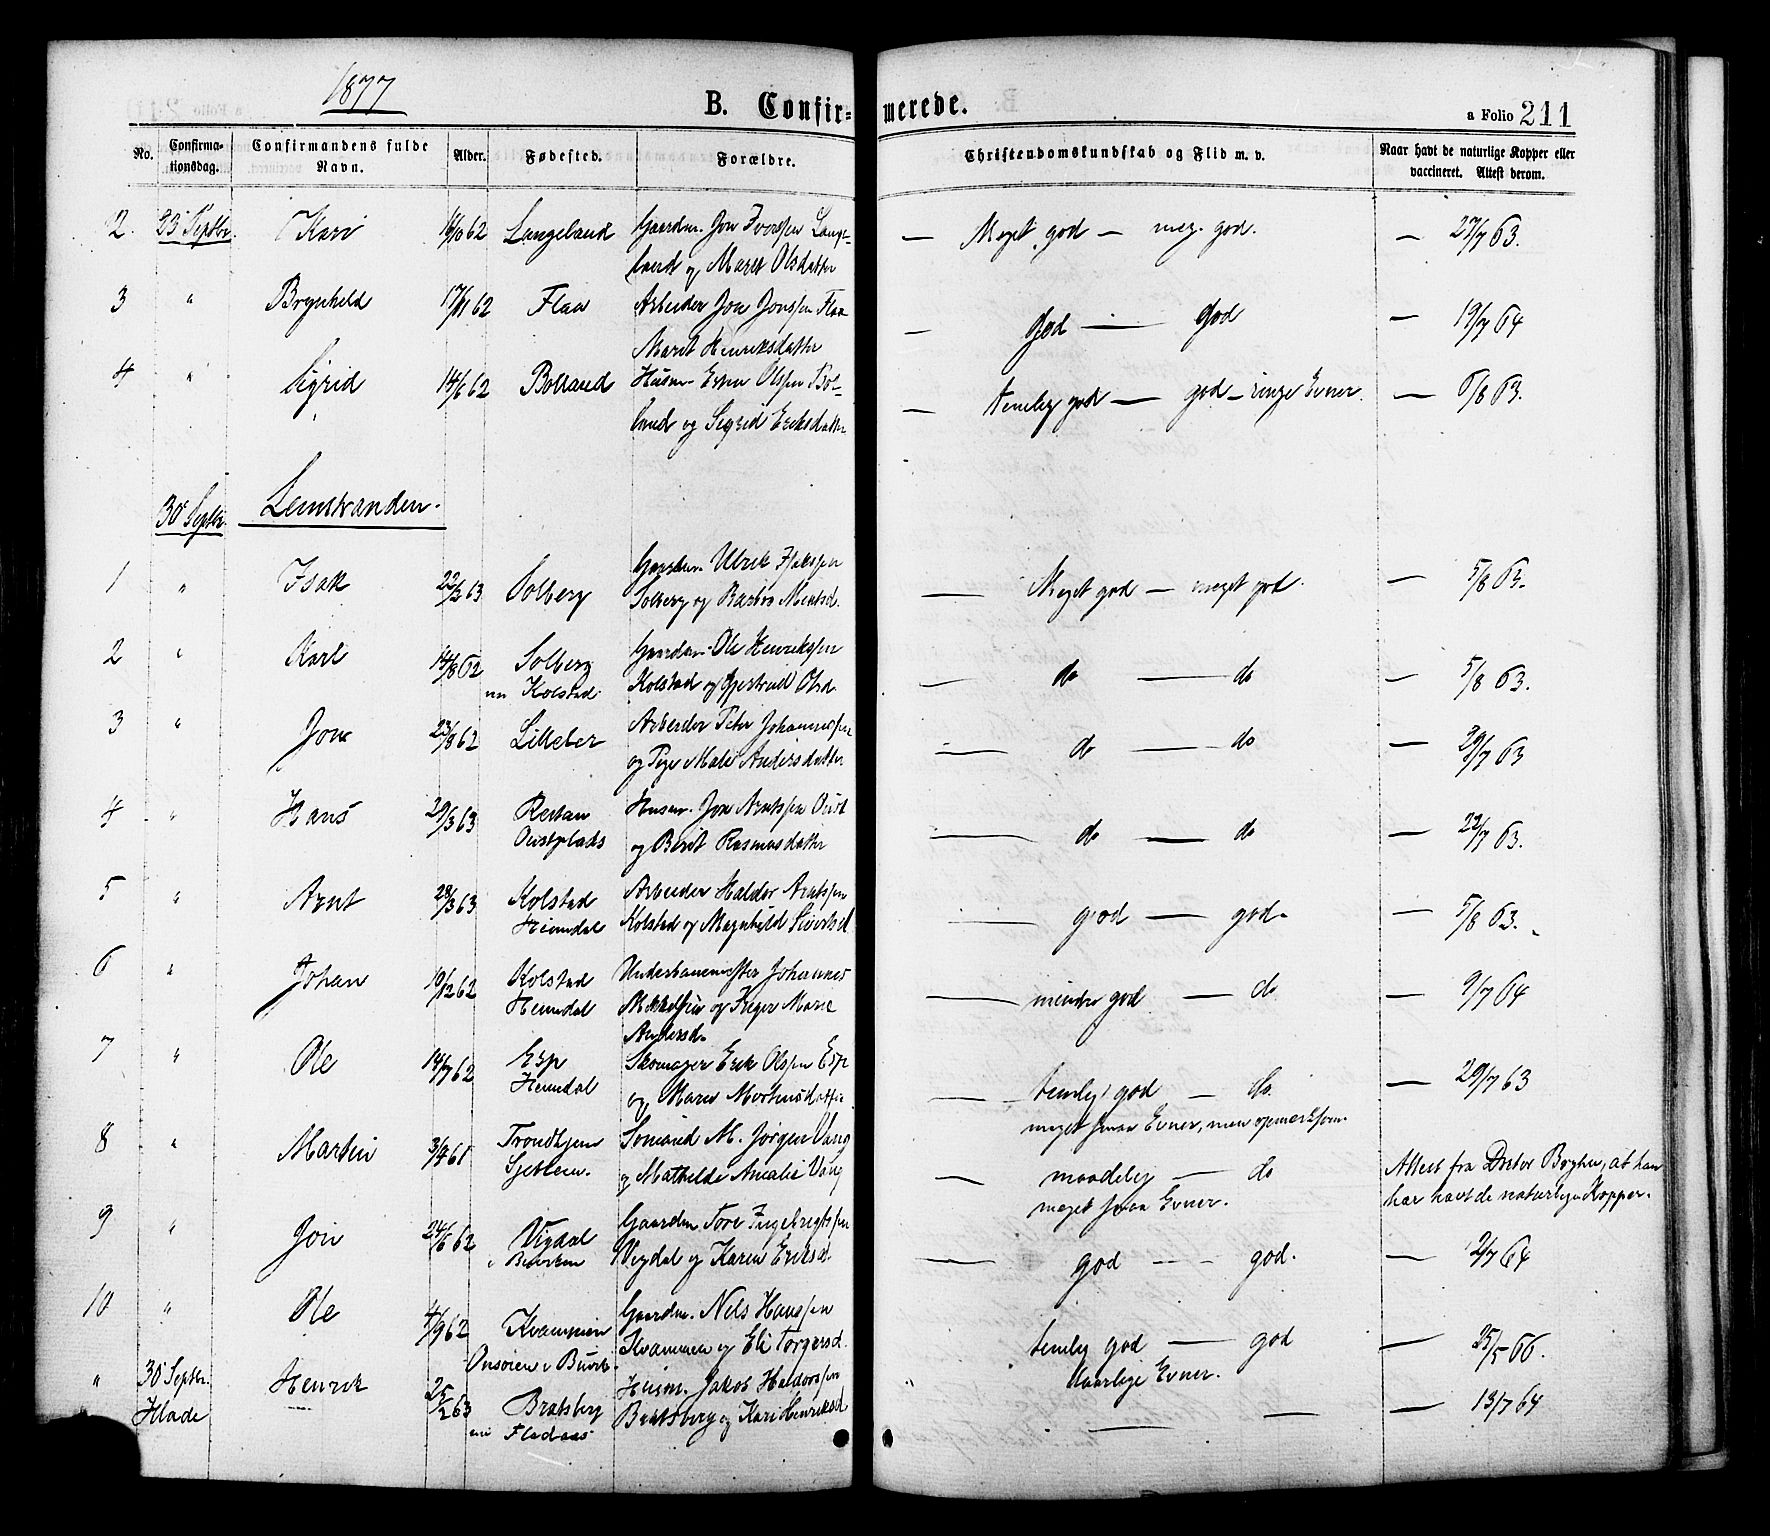 1877
B. Confir-
merede.
a Folio 211
No.
Confirma-
tionsdag.
Confirmandens fulde
Navn.
Alder.
Fødested.
Forældre.
Christendomskundskab og Flid m. v.
Naar havt de naturlige Kopper eller
vaccineret. Attest derom.
2. 23 Septbr. Kari 16/10 62 Langeland Gaardm. Jon Iversen Lange- — Meget god — meg. god. — 27/7 63.
land og Maret Olsdatter
3 " Brynhild 17/11 62 Flaa Arbeider Jon Jonssen Flaa — god — god — 19/7 64
Marit Henriksdatter
4 " Sigrid 14/6 62 Bolland Husm. Esten Olssen Bol- — temelig god — god — ringe Evner. — 6/8 63.
land og Sigrid Eriksdatter
30 Septbr. Leinstranden.
1 " Isak 22/3 63 Solberg Gaardm. Ulrik Isakssen — Meget god — meget god. — 5/8 63.
Solberg og Mentsd.
2 " Karl 14/8 62 Solberg Gaardm. Ole Henrikssen — do — do — 5/8 63.
nu Kolstad Kolstad og Gjertrud Olsd.
3 " Jon 23/8 62 Lilleler Arbeider Peter Johannessen — do — do — 29/7 63
og Andersdatter
4 " Hans 29/3 63 Restan Husm. Jon Arntssen Oust — do — do — 22/7 63.
Oustplads og Berit Rasmusdatter
5 " Arnt 28/3 63 Kolstad Arbeider Haldor Arntssen — god — god. — 5/8 63.
Heimdal Kolstad og Magnhild Sivertsd
6 " Johan 10/12 62 Kolstad Underbanemester Johannes — mindre god — do — 9/7 64
Heimdal Mikkelsen og Inger Marie
Andersd.
7 " Ole 14/7 62 Esp Skomager Erik Olssen Esp — temlig god — do. — 29/7 63
Heimdal og Maren Mortensdatter meget smaa Evner, men opmerksom.
8 " Martin 3/4 61 Trondhjem Sømand M. Jørgen Vang — maadelig — do Attest fra Doctor, at han
Sjetlein. og Mathilde Amalie Vang meget smaa Evner. har havt de naturlige Kopper.
9 " Jon 24/6 62 Vigdal Gaardm Tore Ingebrigtssen — god — god. — 2/7 64
i Buviken Vigdal og Karen Eriksd.
10 " Ole 4/9 62 Kvammen Gaardm. Nels Hanssen — temlig god — god — 25/5 66.
Onsøien i Buvik. Kvammen og Eli Torgersd. daarlige Evner.
" 30 Septbr. Henrik 25/2 63 Bratsberg Husm. Jakob Haldorssen — — — 13/7 64
Klade nu Fladaas Bratsberg og Kari Henriksd